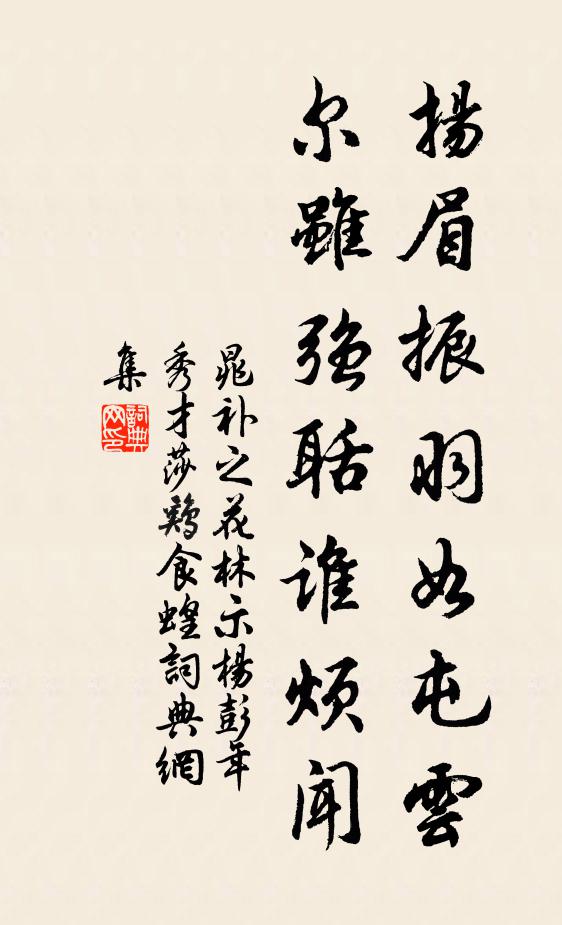 揚眉振羽如屯雲
尔雖強聒誰煩聞
晁补之花林示楊彭年
秀才莎鷄食蝗詞典網
集
詞典网印